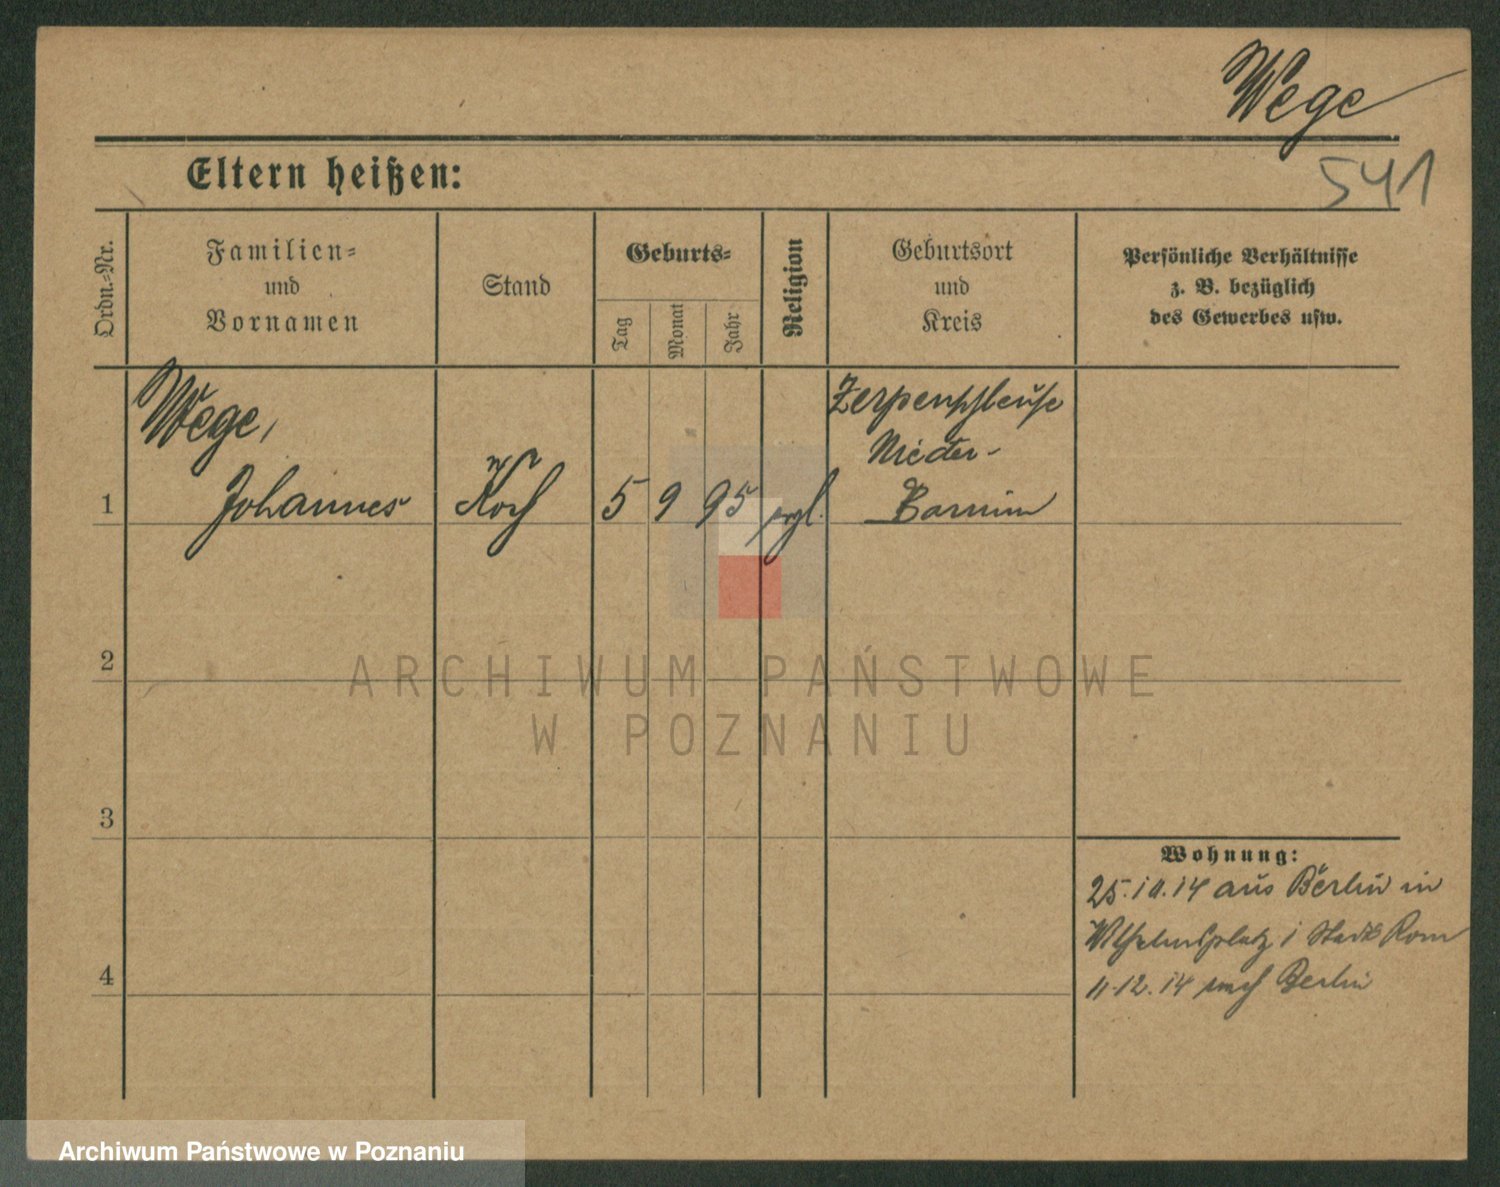 Wege
541
Eltern heißen:
Ordn.-Nr.
Familien-
und
Vornamen
Stand
Geburts-
Tag
Monat
Jahr
Religion
Geburtsort
und
Kreis
Persönliche Verhältnisse
z. B. bezüglich
des Gewerbes usw.
1
Wege,
Johannes
Koch
5
9
95
evgl.
Zerpenschleuse
Nieder-
Barnim
2
3
4
Wohnung:
25.10.14 aus Berlin in
Wilhelmsplatz i Stadt Rom
11.12.14 nach Berlin
ARCHIWUM PAŃSTWOWE
W POZNANIU
Archiwum Państwowe w Poznaniu